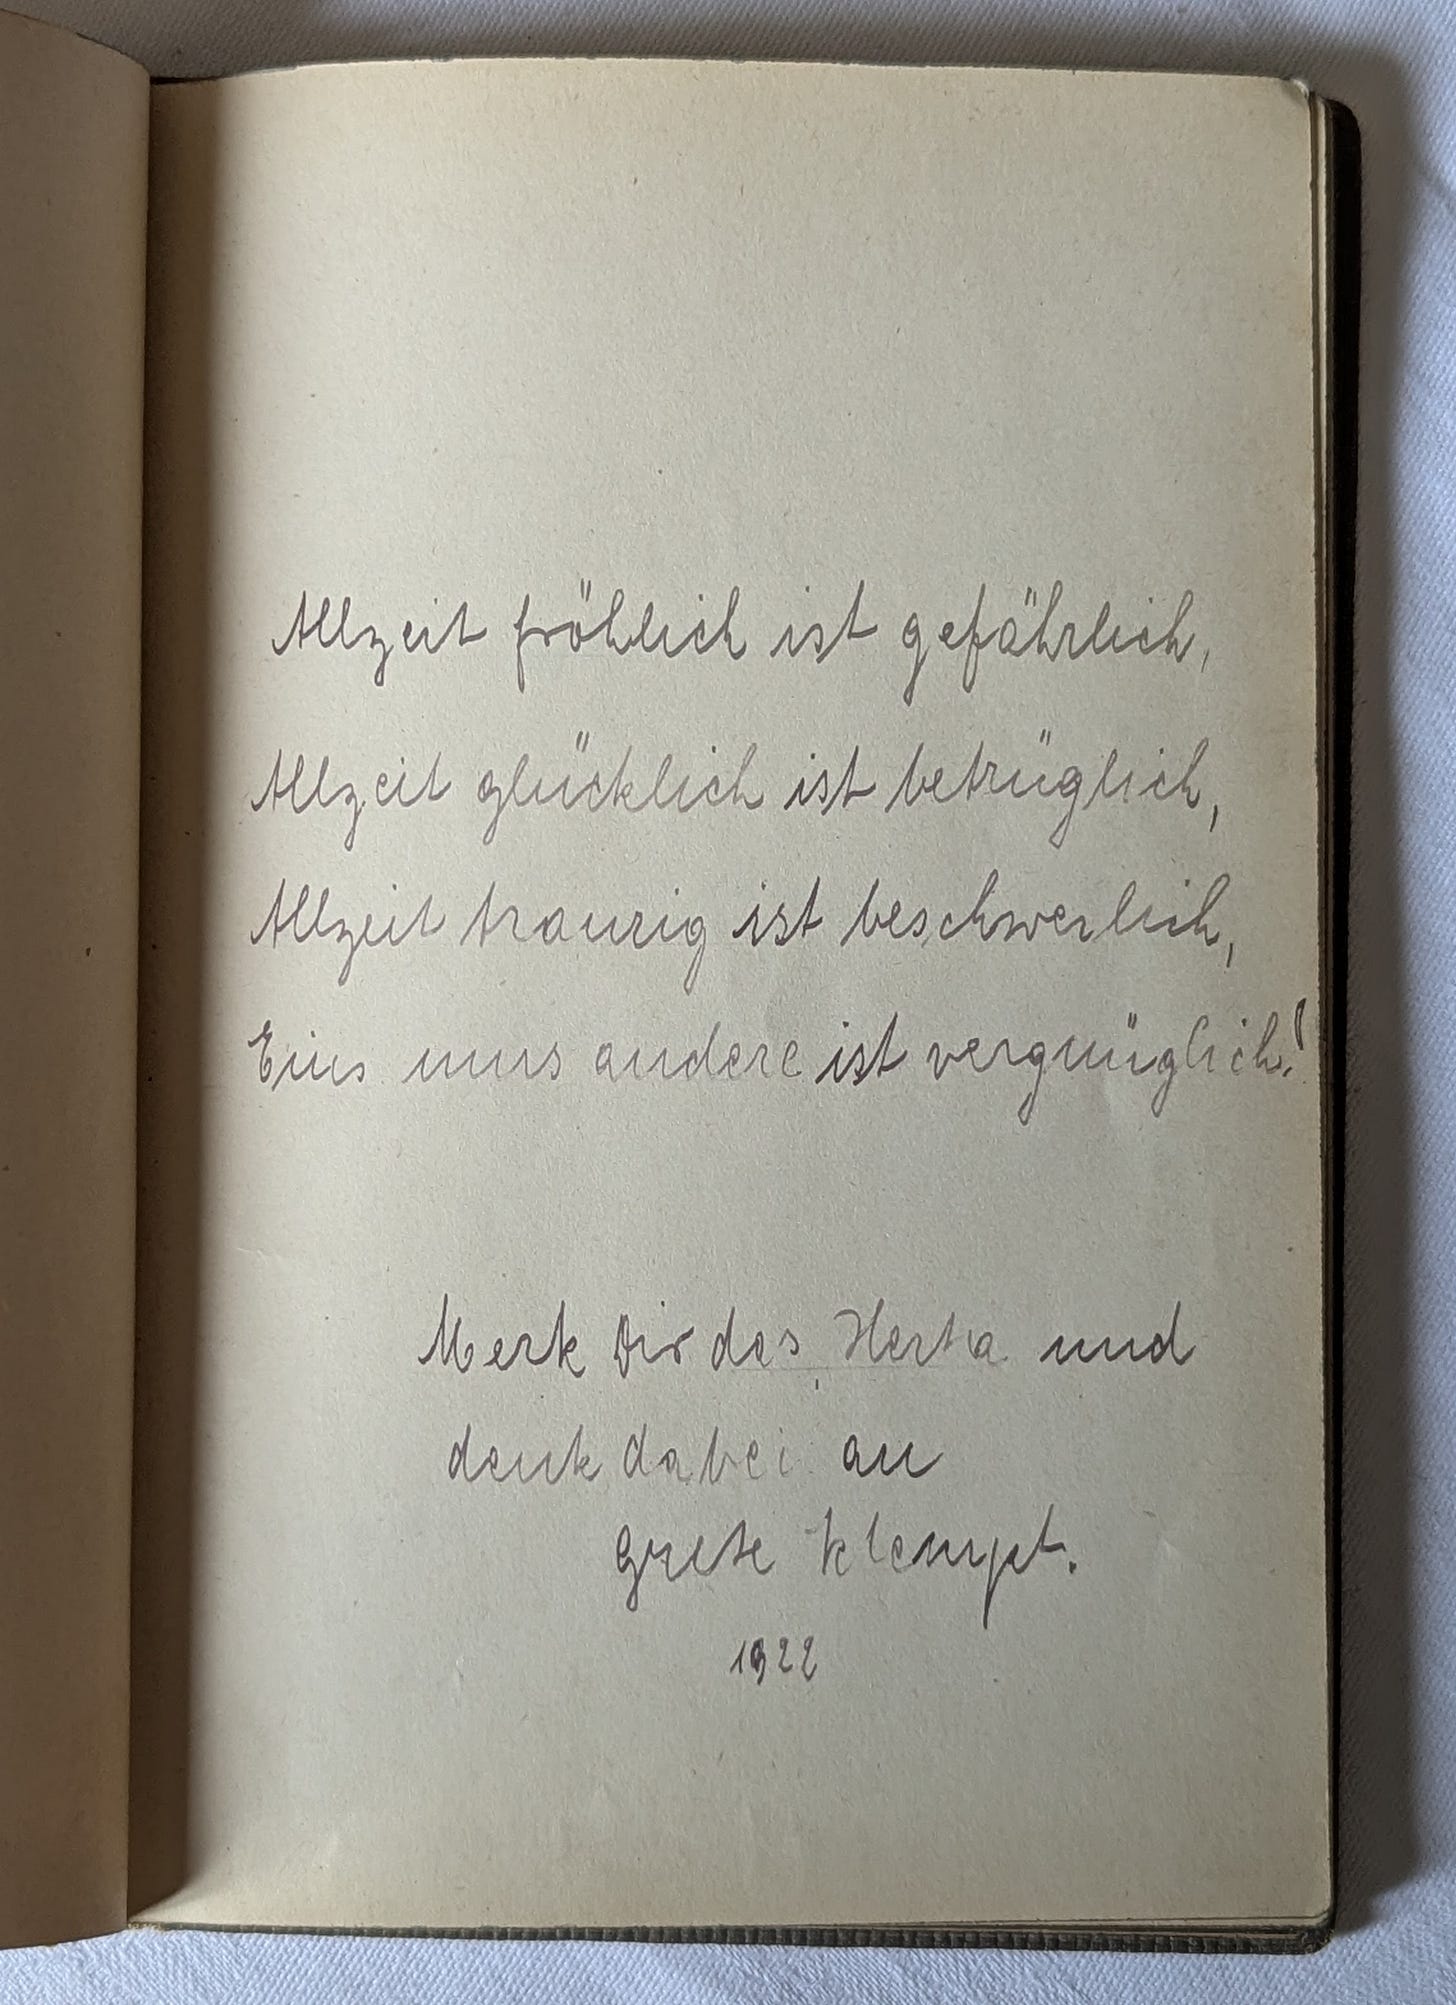 Allzeit fröhlich ist gefährlich,
Allzeit glücklich ist betrüglich,
Allzeit traurig ist beschwerlich,
Eins ums andere ist vergnüglich!
Merk Dir das Herta und
denk dabei an
Grete Klempt.
1922